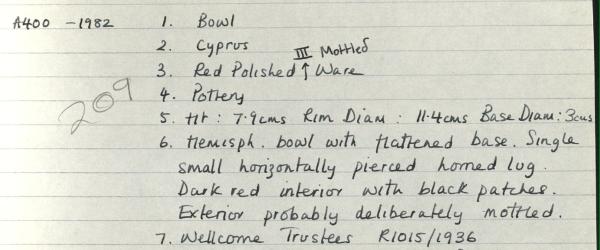 A400 -1982 1. Bowl
2. Cyprus
III Mottled
3. Red Polished ↑ Ware
4. Pottery
209
5. Ht: 7.9cms Rim Diam: 11.4cms Base Diam: 3cms
6. Hemisph. bowl with flattened base. Single
small horizontally pierced horned lug.
Dark red interior with black patches.
Exterior probably deliberately mottled.
7. Wellcome Trustees R1015/1936